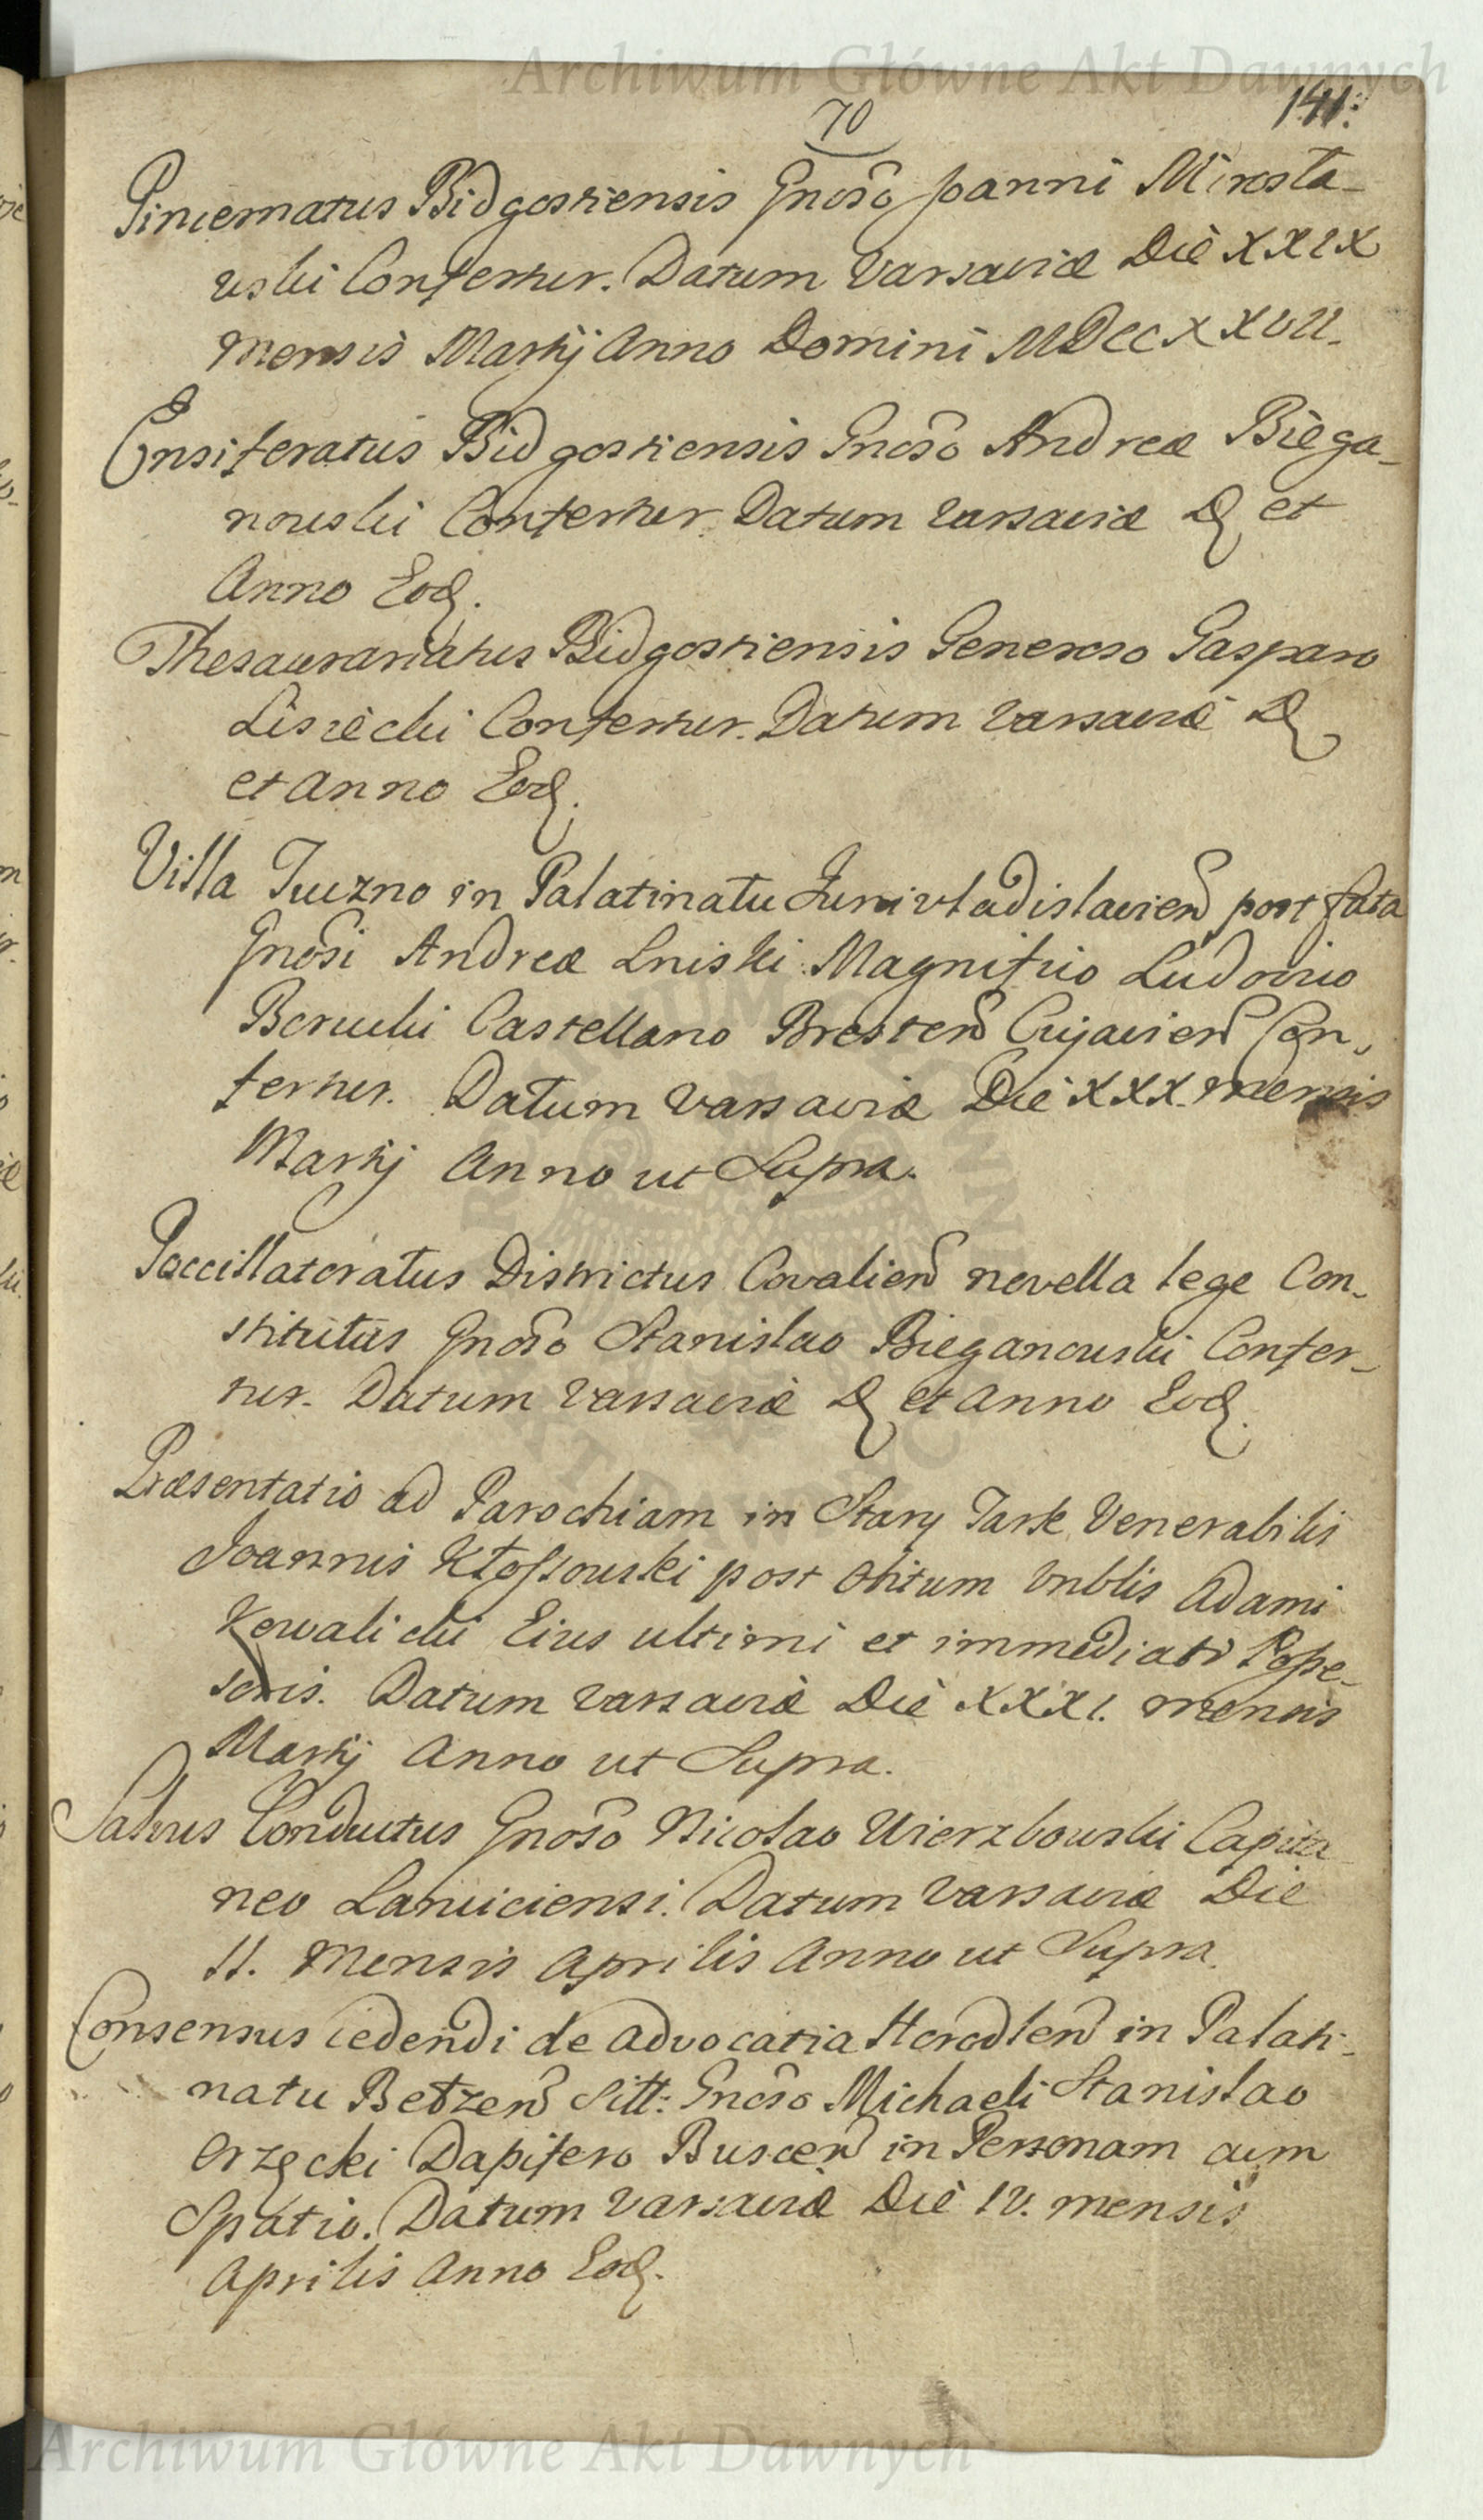 Archiwum Główne Akt Dawnych
70
141.
Pincernatus Bidgostiensis Gnoso Joanni Mirosła-
wski Confertur. Datum Varsaviæ Die XXIX
Mensis Martij Anno Domini MDCCXXVII.
Ensiferatus Bidgostiensis Gnoso Andreæ Biega-
nowski Confertur Datum Varsaviæ D et
Anno Eod.
Thesaurariatus Bidgostiensis Generoso Gasparo
Lisiecki Confertur. Datum Varsaviæ D
et Anno Eod.
Villa Tuczno in Palatinatu Junivladislavien post fata
Gnosi Andreæ Lniski Magnifico Ludovico
Borucki Castellano Bresten Cujavien Con-
fertur. Datum Varsaviæ Die XXX. mensis
Martij Anno ut Supra.
Poccillatoratus Districtus Covalien novella lege Con-
stitutus Gnoso Stanislao Bieganowski Confer-
tur. Datum Varsaviæ D et Anno Eod.
Præsentatio ad Parochiam in Stary Tark Venerabilis
Joannis Kłossowski post obitum Vnblis Adami
Kowalicki Eius ultimi et immediati Posse-
soris. Datum Varsaviæ Die XXXI. mensis
Martij Anno ut Supra.
Salvus Conductus Gnoso Nicolao Wierzbowski Capita
neo Lanciciensi. Datum Varsaviæ Die
II. Mensis Aprilis Anno ut Supra.
Consensus cedendi de advocatia Horodlen in Palati-
natu Bełzen Sitt: Gnoso Michaeli Stanislao
Orzęcki Dapifero Buscen in Personam cum
Spatio. Datum Varsaviæ Die IV. mensis
Aprilis Anno Eod.
Archiwum Główne Akt Dawnych